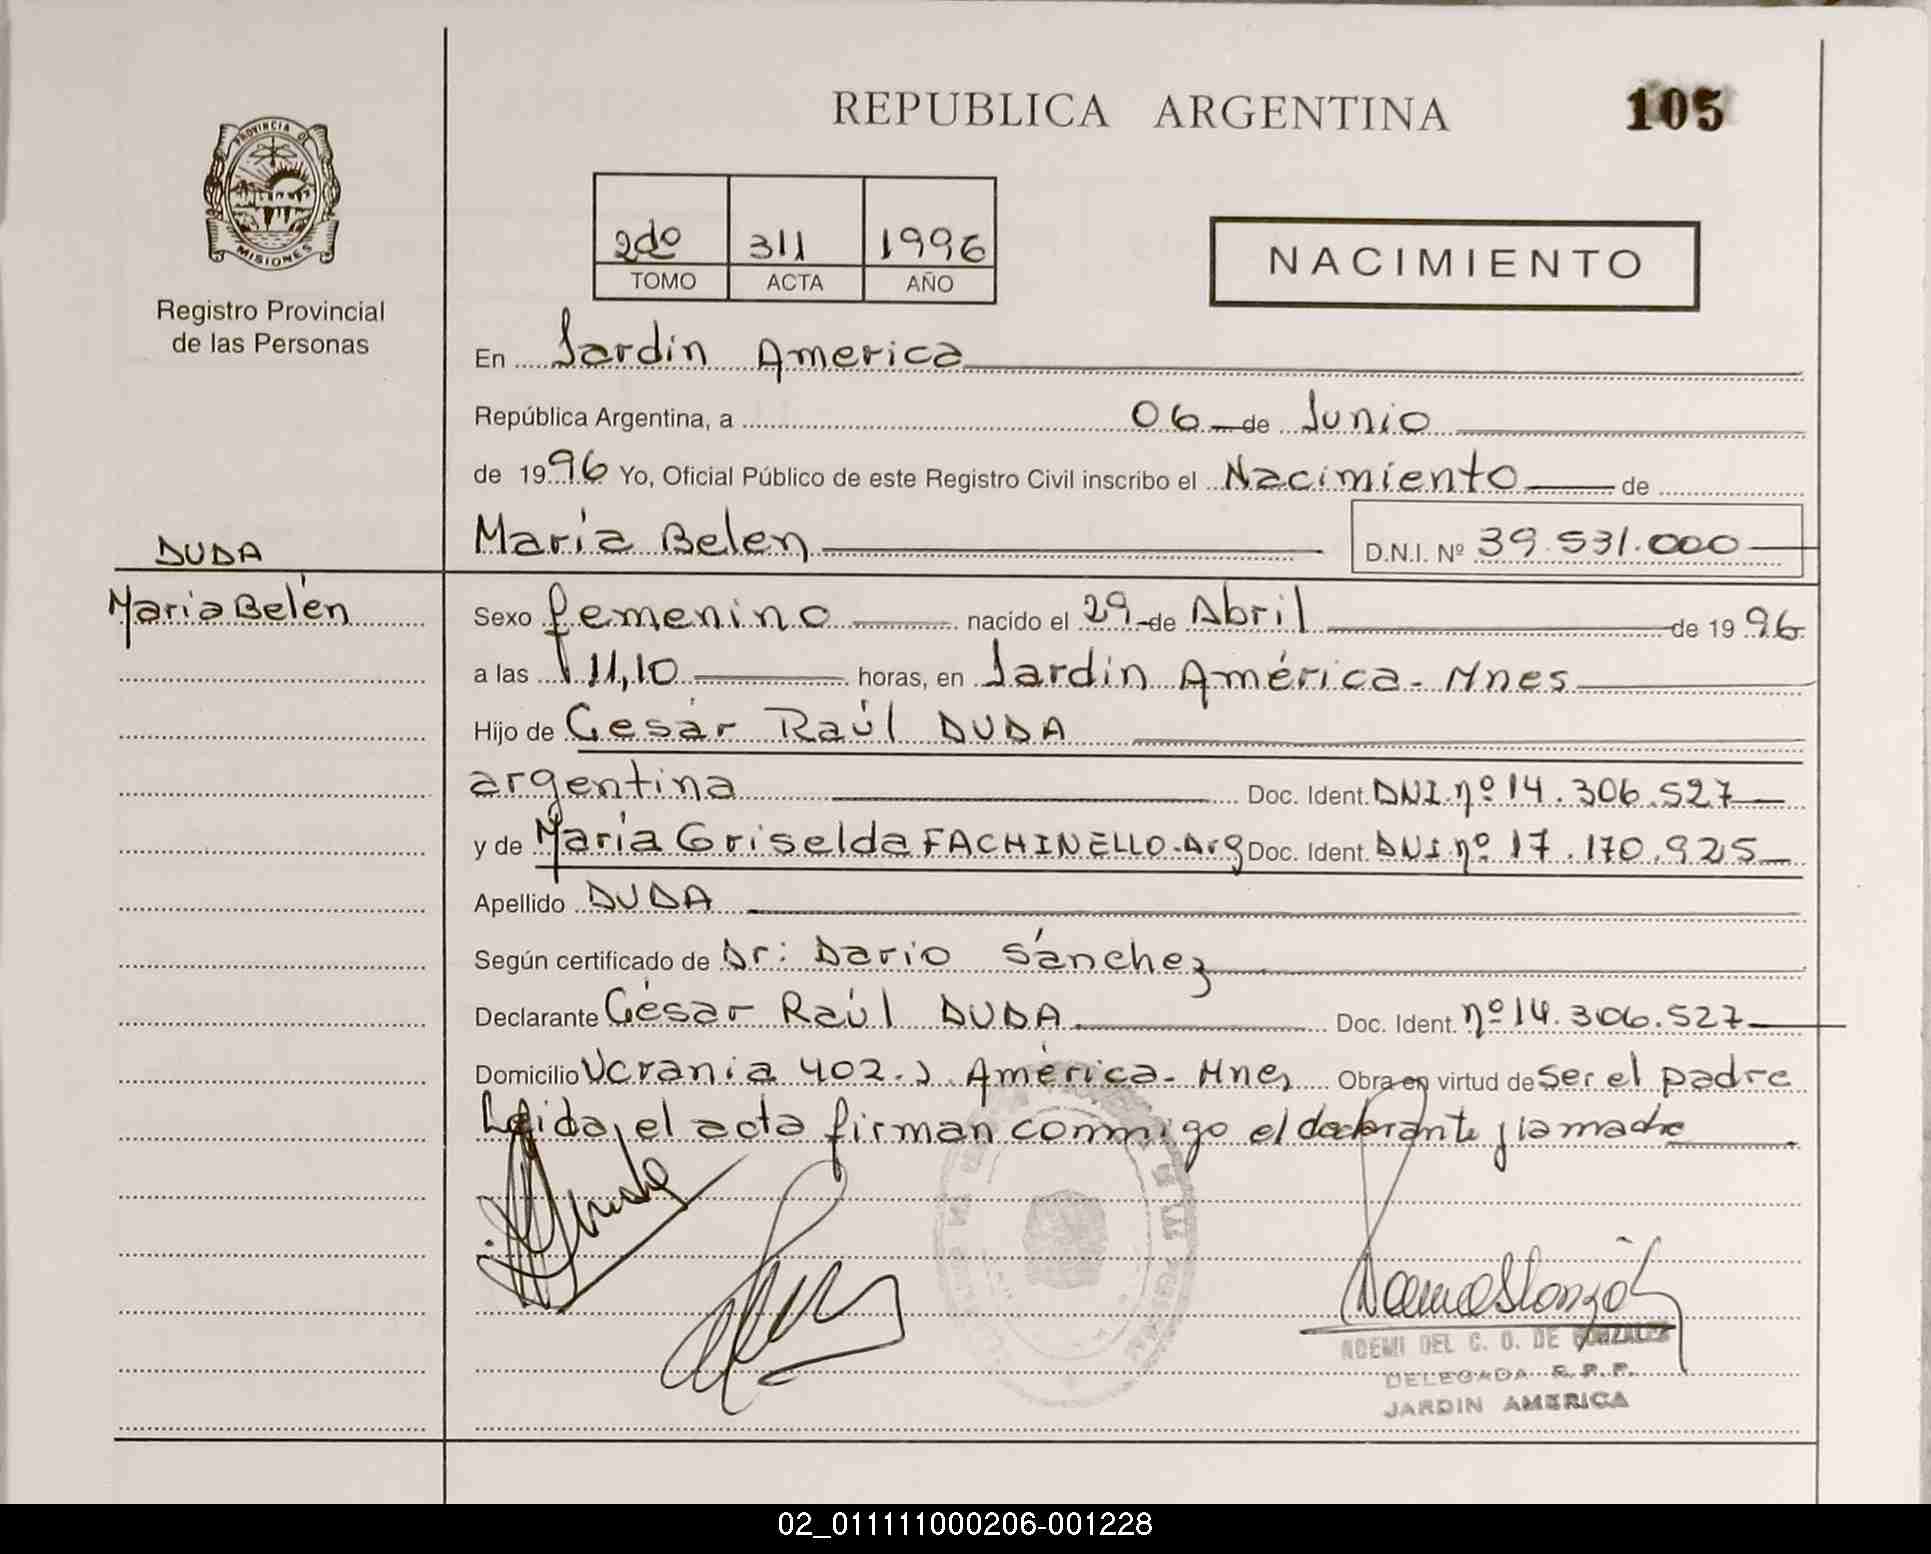 REPUBLICA ARGENTINA
105
PROVINCIA DE
MISIONES
Registro Provincial
de las Personas
2do 311 1996
TOMO ACTA AÑO
NACIMIENTO
En Jardin America
República Argentina, a 06 de Junio
de 1996 Yo, Oficial Público de este Registro Civil inscribo el Nacimiento de
DUDA
María Belen D.N.I. Nº 39.531.000
María Belén
Sexo femenino nacido el 29 de Abril de 1996
a las 11,10 horas, en Jardin América - Mnes
Hijo de Cesár Raúl DUDA
argentina Doc. Ident. DNI.nº 14.306.527
y de María Griselda FACHINELLO.Arg Doc. Ident. DNI.nº 17.170.925
Apellido DUDA
Según certificado de Dr: Dario Sánchez
Declarante César Raúl DUDA Doc. Ident. nº 14.306.527
Domicilio Ucrania 402. J. América - Mnes Obra en virtud de ser el padre
Leida, el acta firman conmigo el declarante y la madre
NOEMI DEL C. O. DE GONZALEZ
DELEGADA R.P.P.
JARDIN AMERICA
02_011111000206-001228